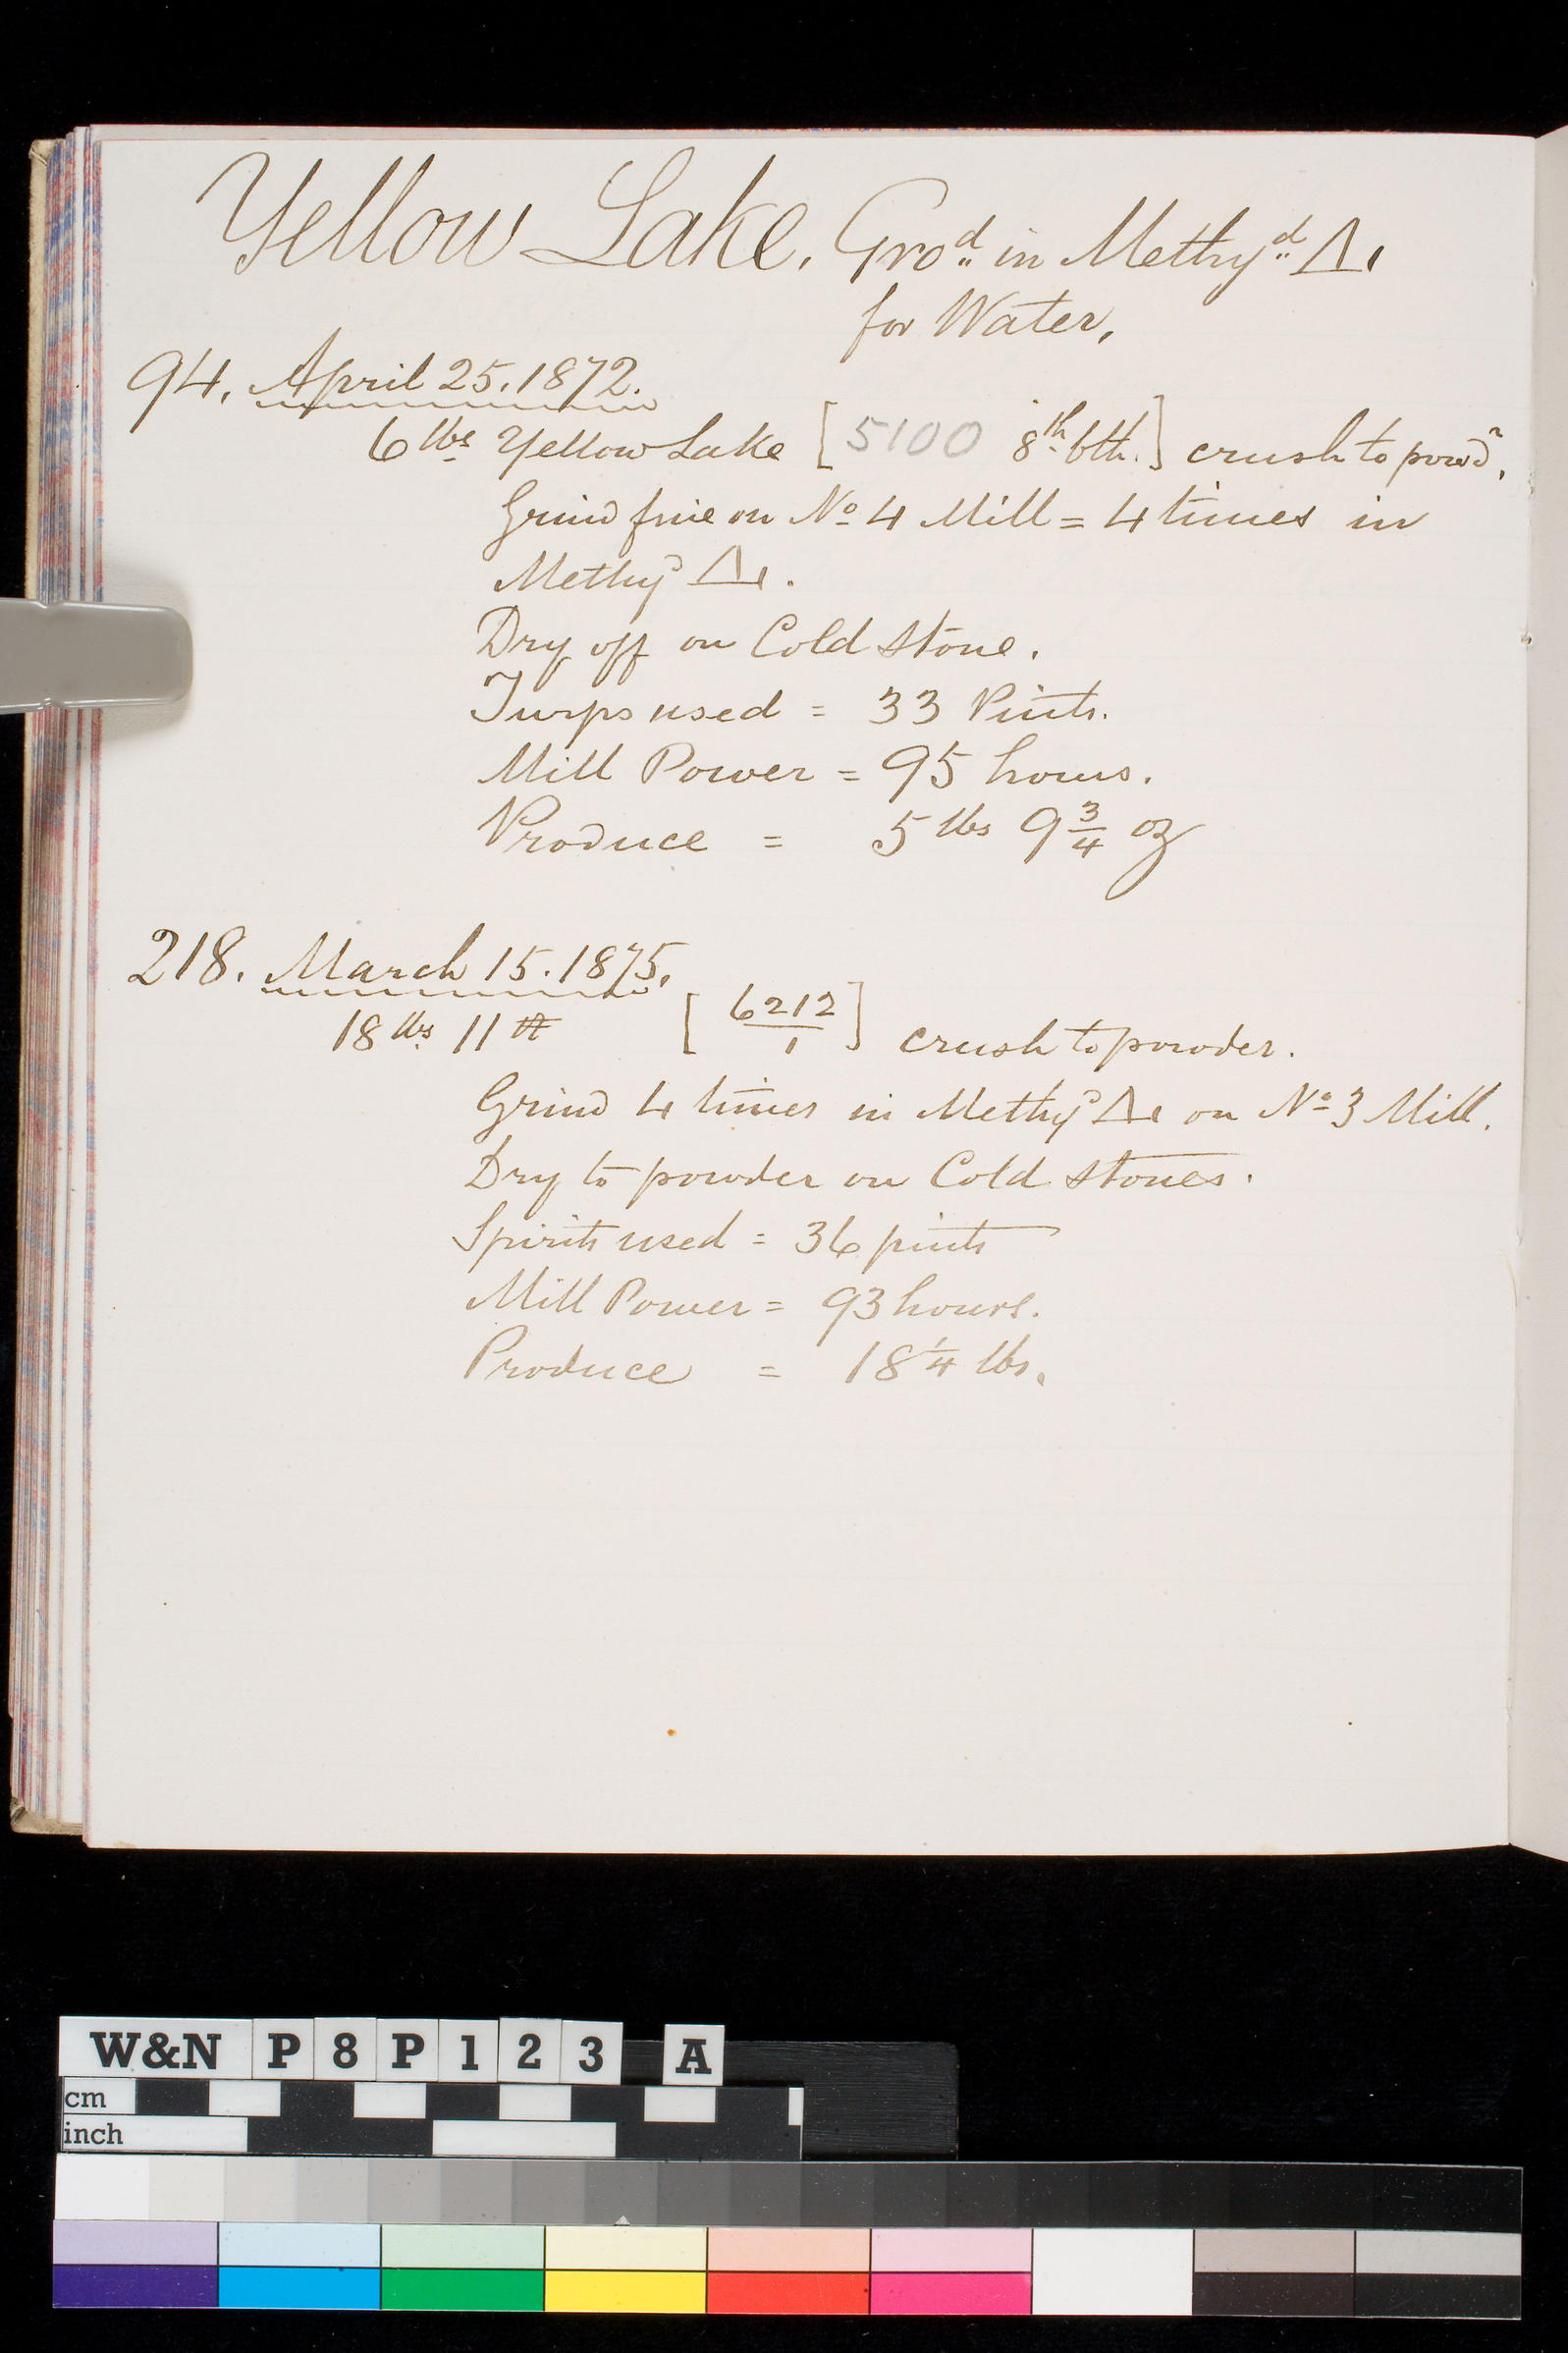 Yellow Lake. Gro^d in Methy^d △1
for Water,
94. April 25. 1872.
6 lbs Yellow Lake [5100 8th bth.] crush to powdr.
Grind fine on No 4 Mill = 4 times in
Methyd △1.
Dry off on Cold Stone.
Turps used = 33 Pints.
Mill Power = 95 hours.
Produce = 5 lbs 9 3/4 oz
218. March 15. 1875.
18 lbs 11 [6212/1] crush to powder.
Grind 4 times in Methyd △1 on No 3 Mill.
Dry to powder on Cold Stones.
Spirits used = 36 pints
Mill Power = 93 hours.
Produce = 18 1/4 lbs.
W&N P8P123 A
cm
inch